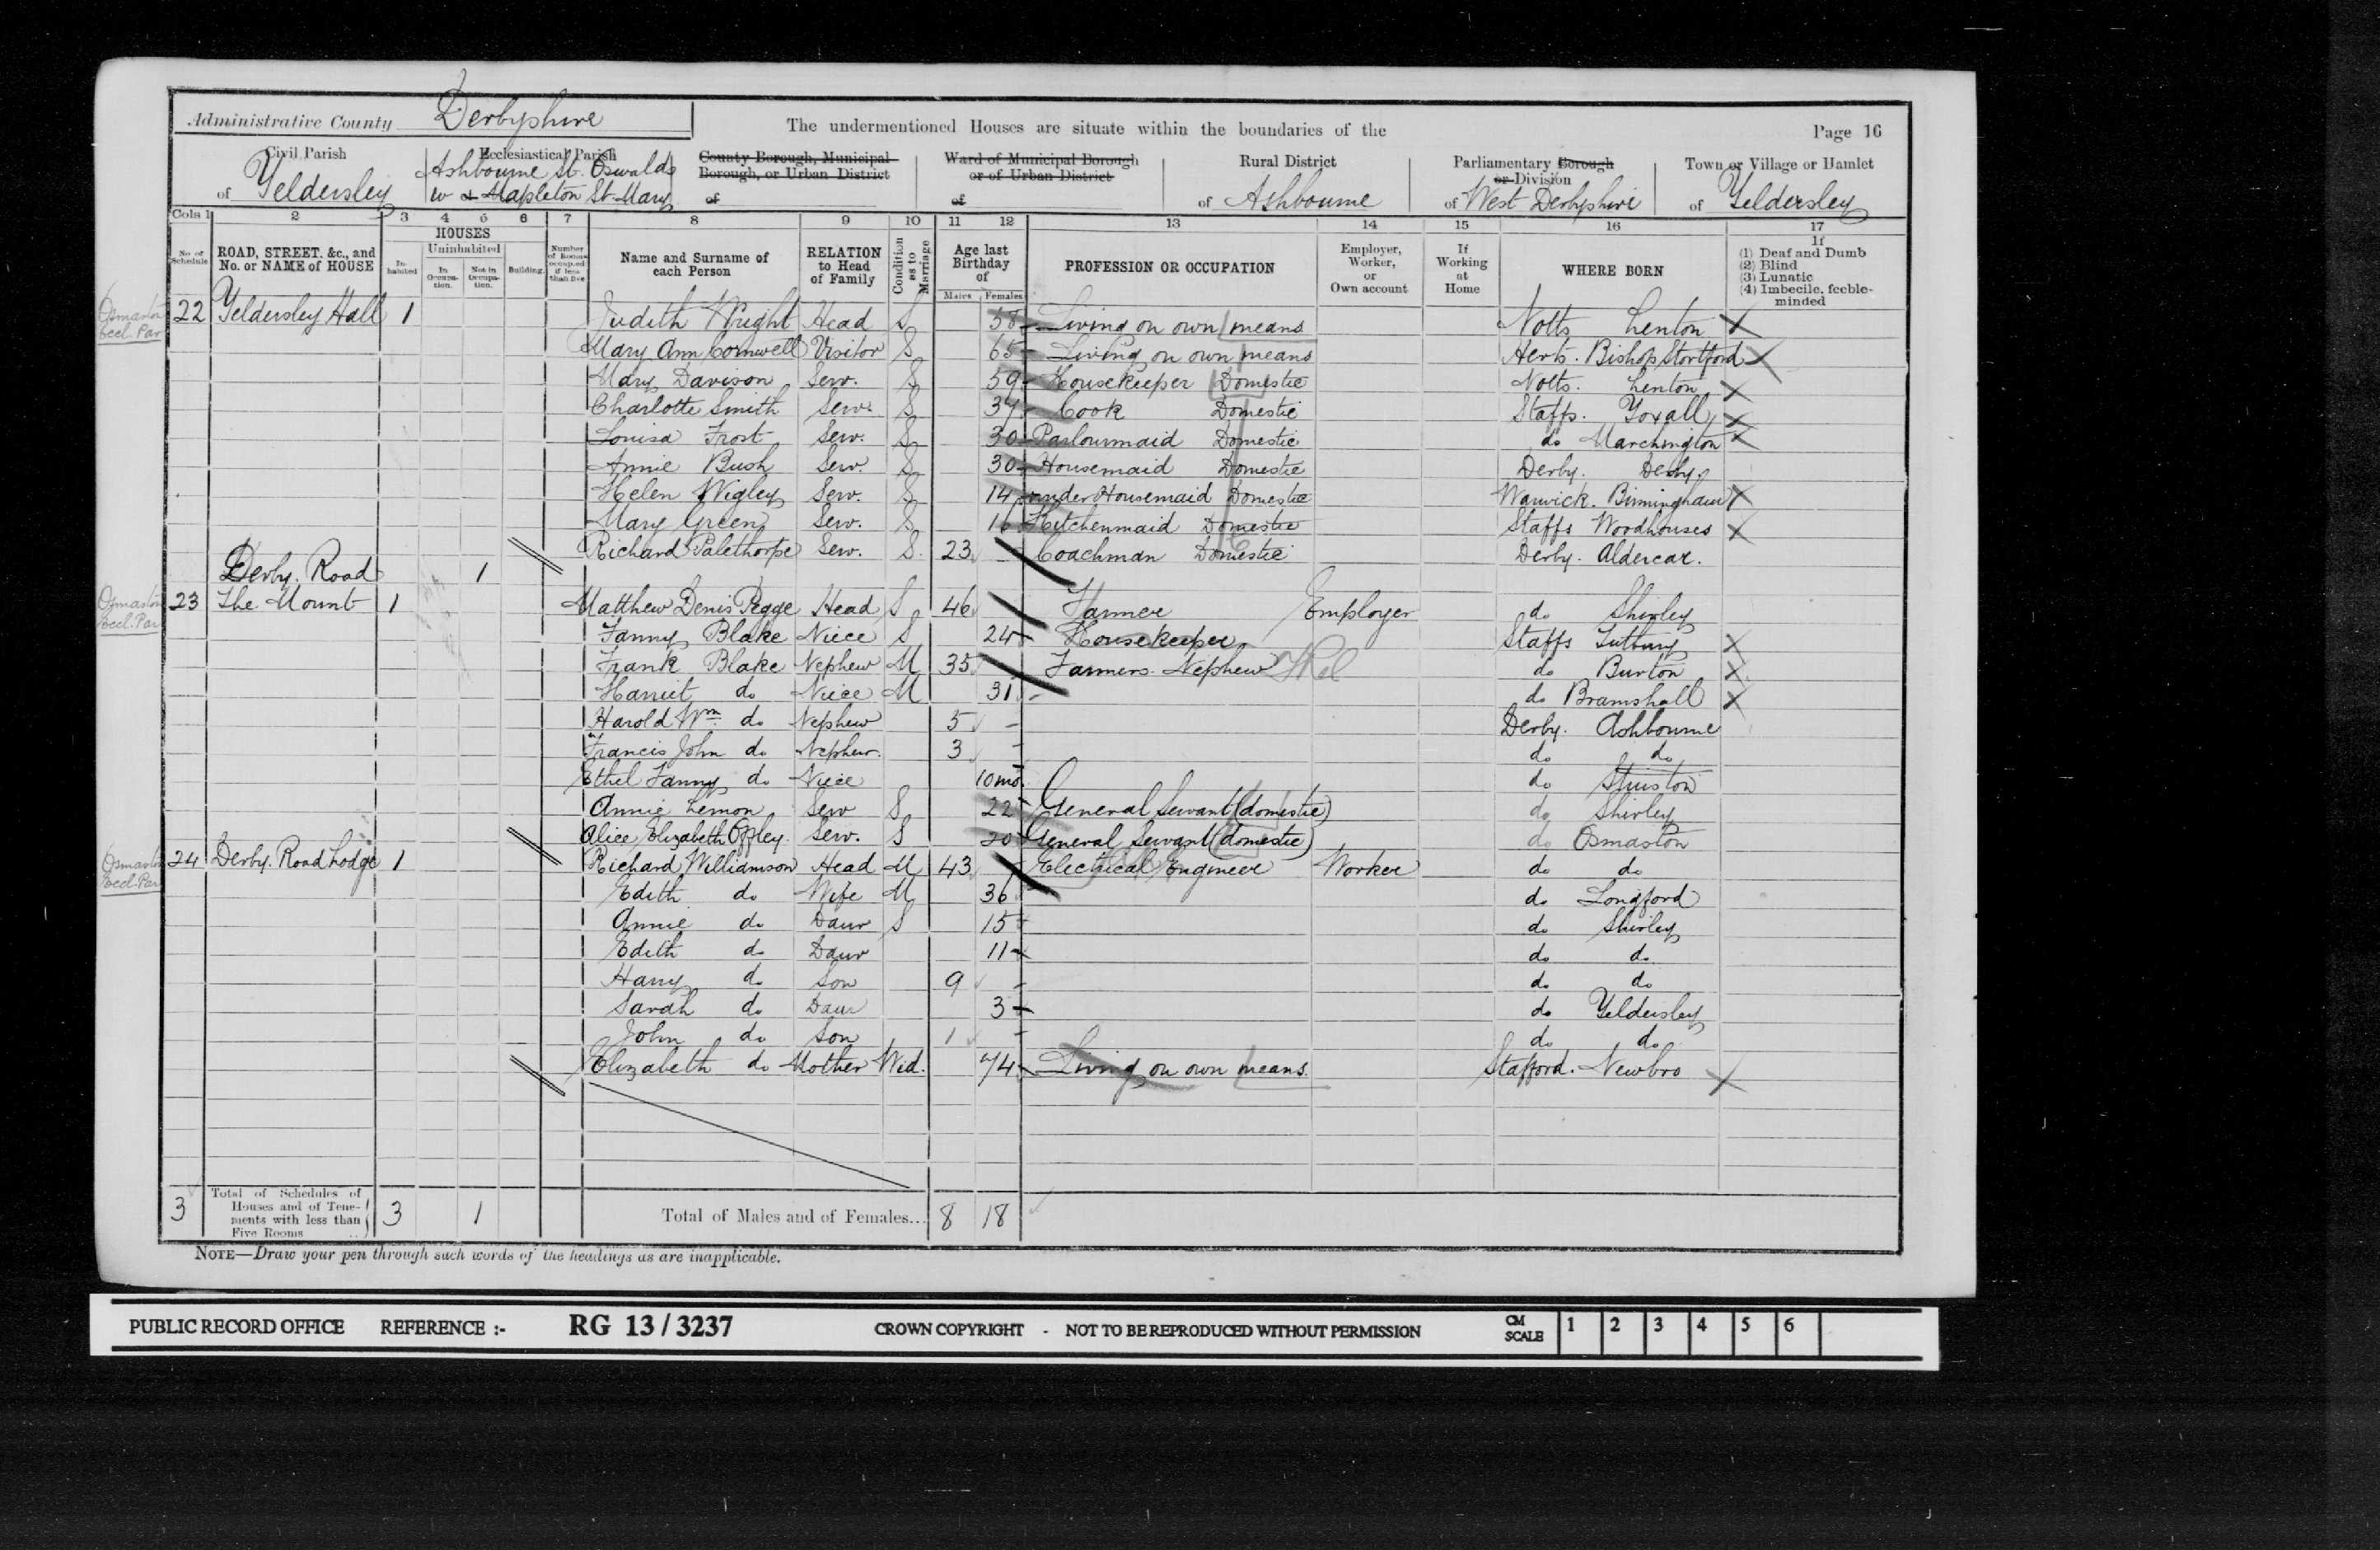 Administrative County Derbyshire
The undermentioned Houses are situate within the boundaries of the
Page 16
Civil Parish of Yeldersley
Ecclesiastical Parish Ashbourne St. Oswalds w & Mapleton St. Mary
County Borough, Municipal Borough, or Urban District of
Ward of Municipal Borough or of Urban District of
Rural District of Ashbourne
Parliamentary Borough or Division of West Derbyshire
Town or Village or Hamlet of Yeldersley
Cols 1 2 3 4 5 6 7 8 9 10 11 12 13 14 15 16 17
No. of Schedule
ROAD, STREET, &c., and No. or NAME of HOUSE
HOUSES
Inhabited
Uninhabited
In Occupation.
Not in Occupation.
Building.
Number of Rooms occupied if less than five
Name and Surname of each Person
RELATION to Head of Family
Condition as to Marriage
Age last Birthday of
Males Females
PROFESSION OR OCCUPATION
Employer, Worker, or Own account
If Working at Home
WHERE BORN
If (1) Deaf and Dumb (2) Blind (3) Lunatic (4) Imbecile, feeble-minded
Osmaston Eccl. Par 22 Yeldersley Hall 1 Judith Wright Head S 58 Living on own means Notts Lenton
Mary Ann Cornwell Visitor S 65 Living on own means Herts. Bishop Stortford
Mary Davison Serv. S 59 Housekeeper Domestic Notts. Lenton
Charlotte Smith Serv. S 37 Cook Domestic Staffs. Yoxall
Louisa Frost Serv. S 30 Parlourmaid Domestic do Marchington
Annie Bush Serv. S 30 Housemaid Domestic Derby. Derby
Helen Wigley Serv. S 14 under Housemaid Domestic Warwick. Birmingham
Mary Green Serv. S 16 Kitchenmaid Domestic Staffs Woodhouses
Richard Palethorpe Serv. S. 23 Coachman Domestic Derby. Aldercar.
Derby. Road 1
Osmaston Eccl. Par 23 The Mount 1 Matthew Denis Pegge Head S 46 Farmer Employer do Shirley
Fanny Blake Niece S 24 Housekeeper Staffs Tutbury
Frank Blake Nephew M 35 Farmers Nephew do Burton
Harriet do Niece M 31 do Bramshall
Harold Wm do Nephew 5 Derby. Ashbourne
Francis John do Nephew. 3 do do
Ethel Fanny do Niece 10mo. do
Annie Lemon Serv S 22 General Servant (domestic) do Shirley
Alice Elizabeth Serv. S 20 General Servant (domestic) do Osmaston
Osmaston Eccl. Par 24 Derby. Road Lodge 1 Richard Williamson Head M 43 Electrical Engineer Worker do do
Edith do Wife M 36 do Longford
Annie do Daur S 15 do Shirley
Edith do Daur 11 do do
Harry do Son 9 do do
Sarah do Daur 3 do Yeldersley
John do Son 1 do do
Elizabeth do Mother Wid. 74 Living on own means. Stafford. Newbro
3 Total of Schedules of Houses and of Tenements with less than Five Rooms 3 1 Total of Males and of Females... 8 18
NOTE—Draw your pen through such words of the headings as are inapplicable.
PUBLIC RECORD OFFICE REFERENCE :- RG 13 / 3237 CROWN COPYRIGHT - NOT TO BE REPRODUCED WITHOUT PERMISSION CM SCALE 1 2 3 4 5 6